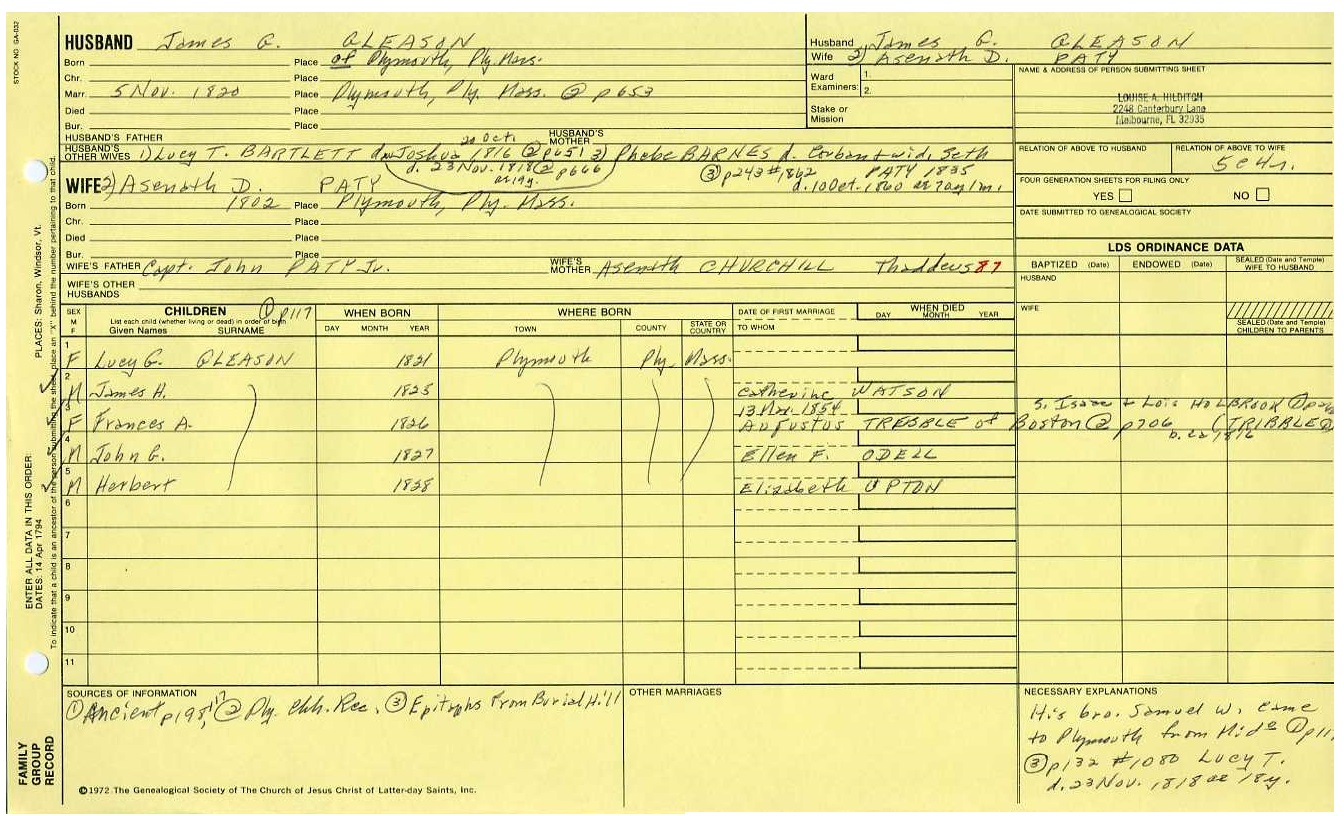 STOCK NO GA-032
HUSBAND James G. GLEASON
Born Place of Plymouth, Ply. Mass.
Chr. Place
Marr. 5 Nov. 1820 Place Plymouth, Ply. Mass. ② p653
Died Place
Bur. Place
Husband James G. GLEASON
Wife 2) Asenath D. PATY
Ward Examiners: 1. 2.
Stake or Mission
NAME & ADDRESS OF PERSON SUBMITTING SHEET
LOUISE A. HILDITCH
2248 Canterbury Lane
Melbourne, FL 32935
RELATION OF ABOVE TO HUSBAND
RELATION OF ABOVE TO WIFE
5c4r.
FOUR GENERATION SHEETS FOR FILING ONLY
YES NO
DATE SUBMITTED TO GENEALOGICAL SOCIETY
HUSBAND'S FATHER HUSBAND'S MOTHER
20 Oct.
HUSBAND'S OTHER WIVES 1) Lucy T. BARTLETT d. Joshua 1816 ② p651 3) Phebe BARNES d. Corban + wid. Seth
d. 23 Nov. 1818 ② p666 ③ p243 #1862 PATY 1835
ae 19y. d. 10 Oct. 1860 ae 70y 1m.
WIFE 2) Asenath D. PATY
Born 1802 Place Plymouth, Ply. Mass.
Chr. Place
Died Place
Bur. Place
WIFE'S FATHER Capt. John PATY Jr. WIFE'S MOTHER Asenath CHURCHILL Thaddeus 87
WIFE'S OTHER HUSBANDS
LDS ORDINANCE DATA
BAPTIZED (Date) ENDOWED (Date) SEALED (Date and Temple) WIFE TO HUSBAND
HUSBAND
WIFE
SEALED (Date and Temple) CHILDREN TO PARENTS
SEX M F
CHILDREN ① p117
List each child (whether living or dead) in order of birth
Given Names SURNAME
WHEN BORN
DAY MONTH YEAR
WHERE BORN
TOWN COUNTY STATE OR COUNTRY
DATE OF FIRST MARRIAGE
TO WHOM
WHEN DIED
DAY MONTH YEAR
1 F Lucy G. GLEASON 1821 Plymouth Ply. Mass.
2 M James H. 1823 Catherine WATSON
13 1854 S. Isaac + Lois HOLBROOK
3 F Frances A. 1826 Augustus TREBBLE of Boston ② p706 (TRIBBLE
b. ca 1816
4 M John G. 1827 Ellen F. ODELL
5 M Herbert 1828 Elizabeth UPTON
6
7
8
9
10
11
PLACES: Sharon, Windsor, Vt.
ENTER ALL DATA IN THIS ORDER:
DATES: 14 Apr 1794
To indicate that a child is an ancestor of the person submitting the sheet, place an "X" behind the number pertaining to that child.
FAMILY GROUP RECORD
SOURCES OF INFORMATION
① Ancient p198, 117 ② Ply. Chh. Rec. ③ Epitaphs From Burial Hill
OTHER MARRIAGES
NECESSARY EXPLANATIONS
His bro. Samuel W. came
to Plymouth from Mido ① p117
③ p132 #1080 Lucy T.
d. 23 Nov. 1818 ae 18y.
©1972 The Genealogical Society of The Church of Jesus Christ of Latter-day Saints, Inc.